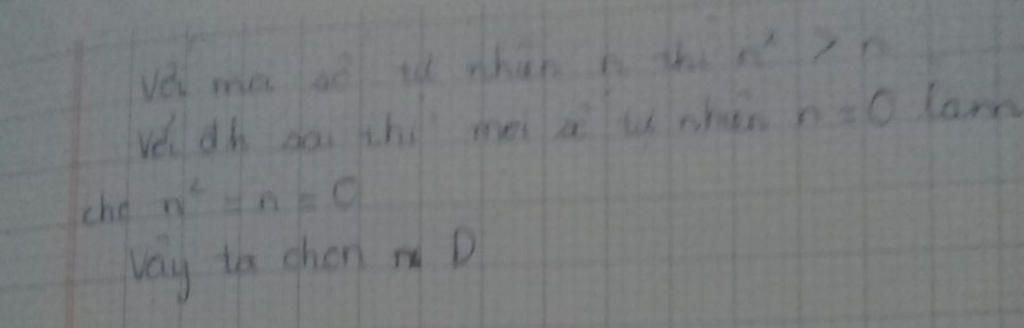 Với mọi số tự nhiên n thì n² > n
Với đk sai thì mọi số tự nhiên n = 0 làm
cho n² = n = 0
Vậy ta chọn D